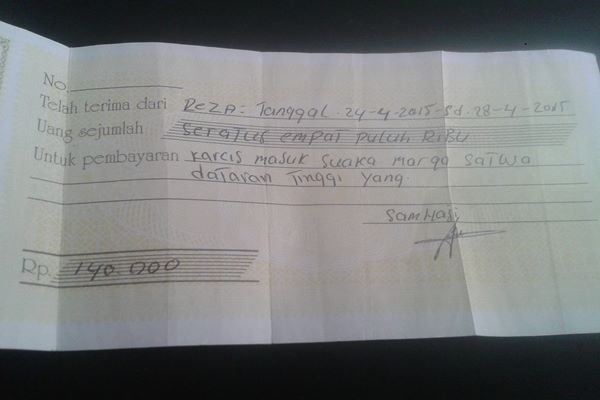 No.
Telah terima dari REZA: Tanggal. 24-4-2015-sd. 28-4-2015
Uang sejumlah seratus empat puluh Ribu
Untuk pembayaran karcis masuk suaka marga satwa
dataran Tinggi Yang.
Samhaji
Rp. 140.000